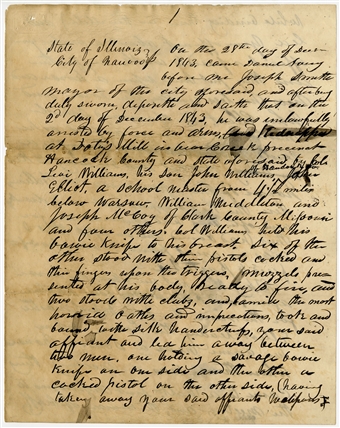 1
State of Illinois
City of Nauvoo
On the 28th day of Decr
1843, came Daniel Avery
before me Joseph Smith
mayor of the city aforesaid, and after being
duly sworn, deposeth and saith that on the
2d day of December 1843, he was unlawfully
arrested by force and arms, and kidnapped
at Doty's Mill in bear Creek precinct
Hancock County and State aforesaid by Col.
Levi Williams, his son John Williams, John
Elliot a school master from 4½ miles
below Warsaw, William Middleton and
Joseph McCoy of Clark County Missouri
and four others. Col Williams held his
bowie Knife to his breast. Six of the
others stood with their pistols cocked and
their fingers upon the triggers, muzzels pre
sented at his body, ready to fire, and
two stood with clubs, and, amid the most
horrid Oaths and imprecations, took and
bound, with silk handkerchiefs, your said
affiant and led him away between
two men, one holding a savage bowie
Knife on one side and the other a
cocked pistol on the other side, (having
taken away your said affiants weapons)